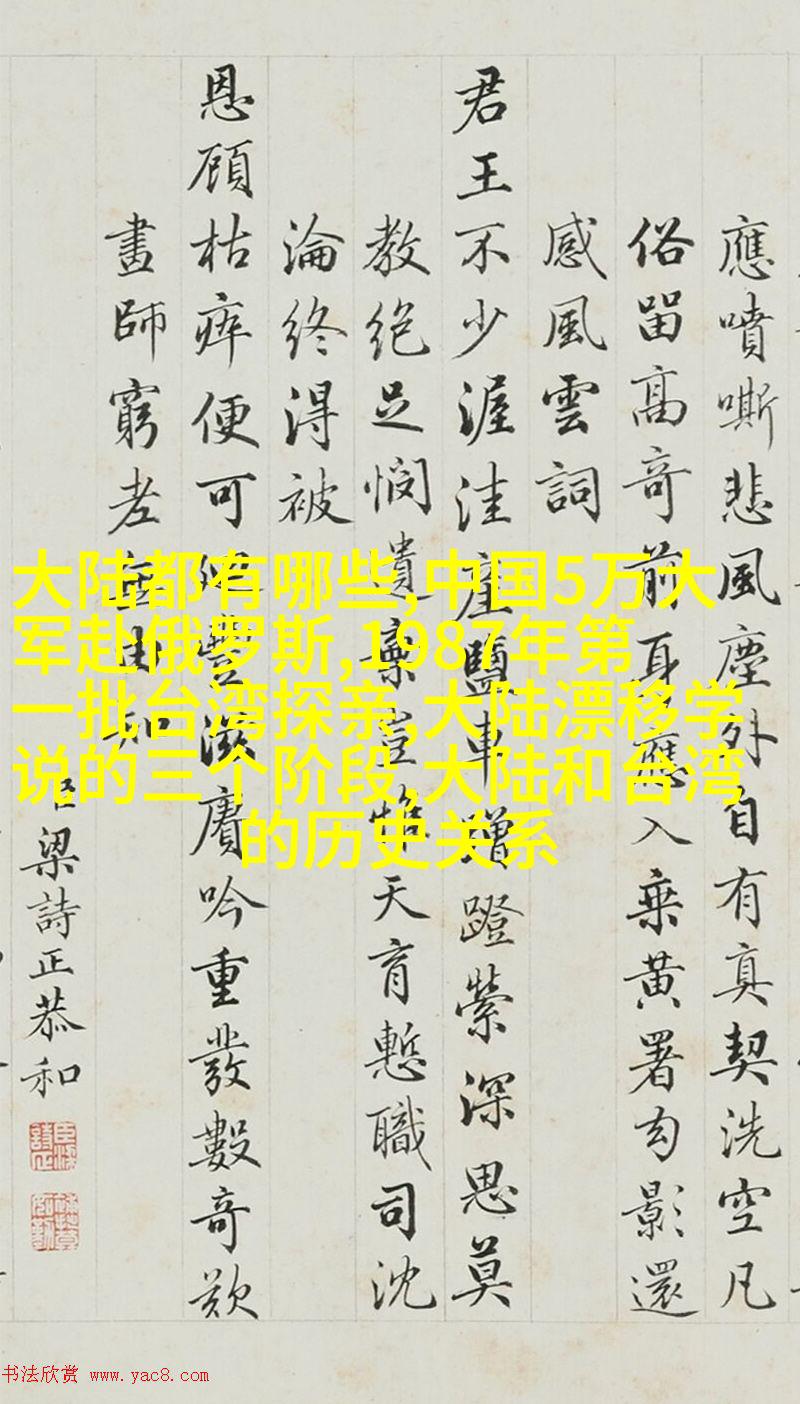 應噴嘶悲風塵外自有真契洗空凡
俗留高奇前身應入乘黃署勾影還
感風雲詞
君王不少渥洼產鹽車蹭蹬縈深思莫
教絕足憫遺棄豈惟天育慙職司沈
淪終淂被
恩顧枯瘁便可
滋賡吟重發數奇歎
畫師窮老
臣梁詩正恭和
大陆都有哪些,中国5万大
军赴俄罗斯,1987年第
一批台湾探亲,大陆漂移学
说的三个阶段,大陆和台湾
的历史关系
书法欣赏 www.yac8.com